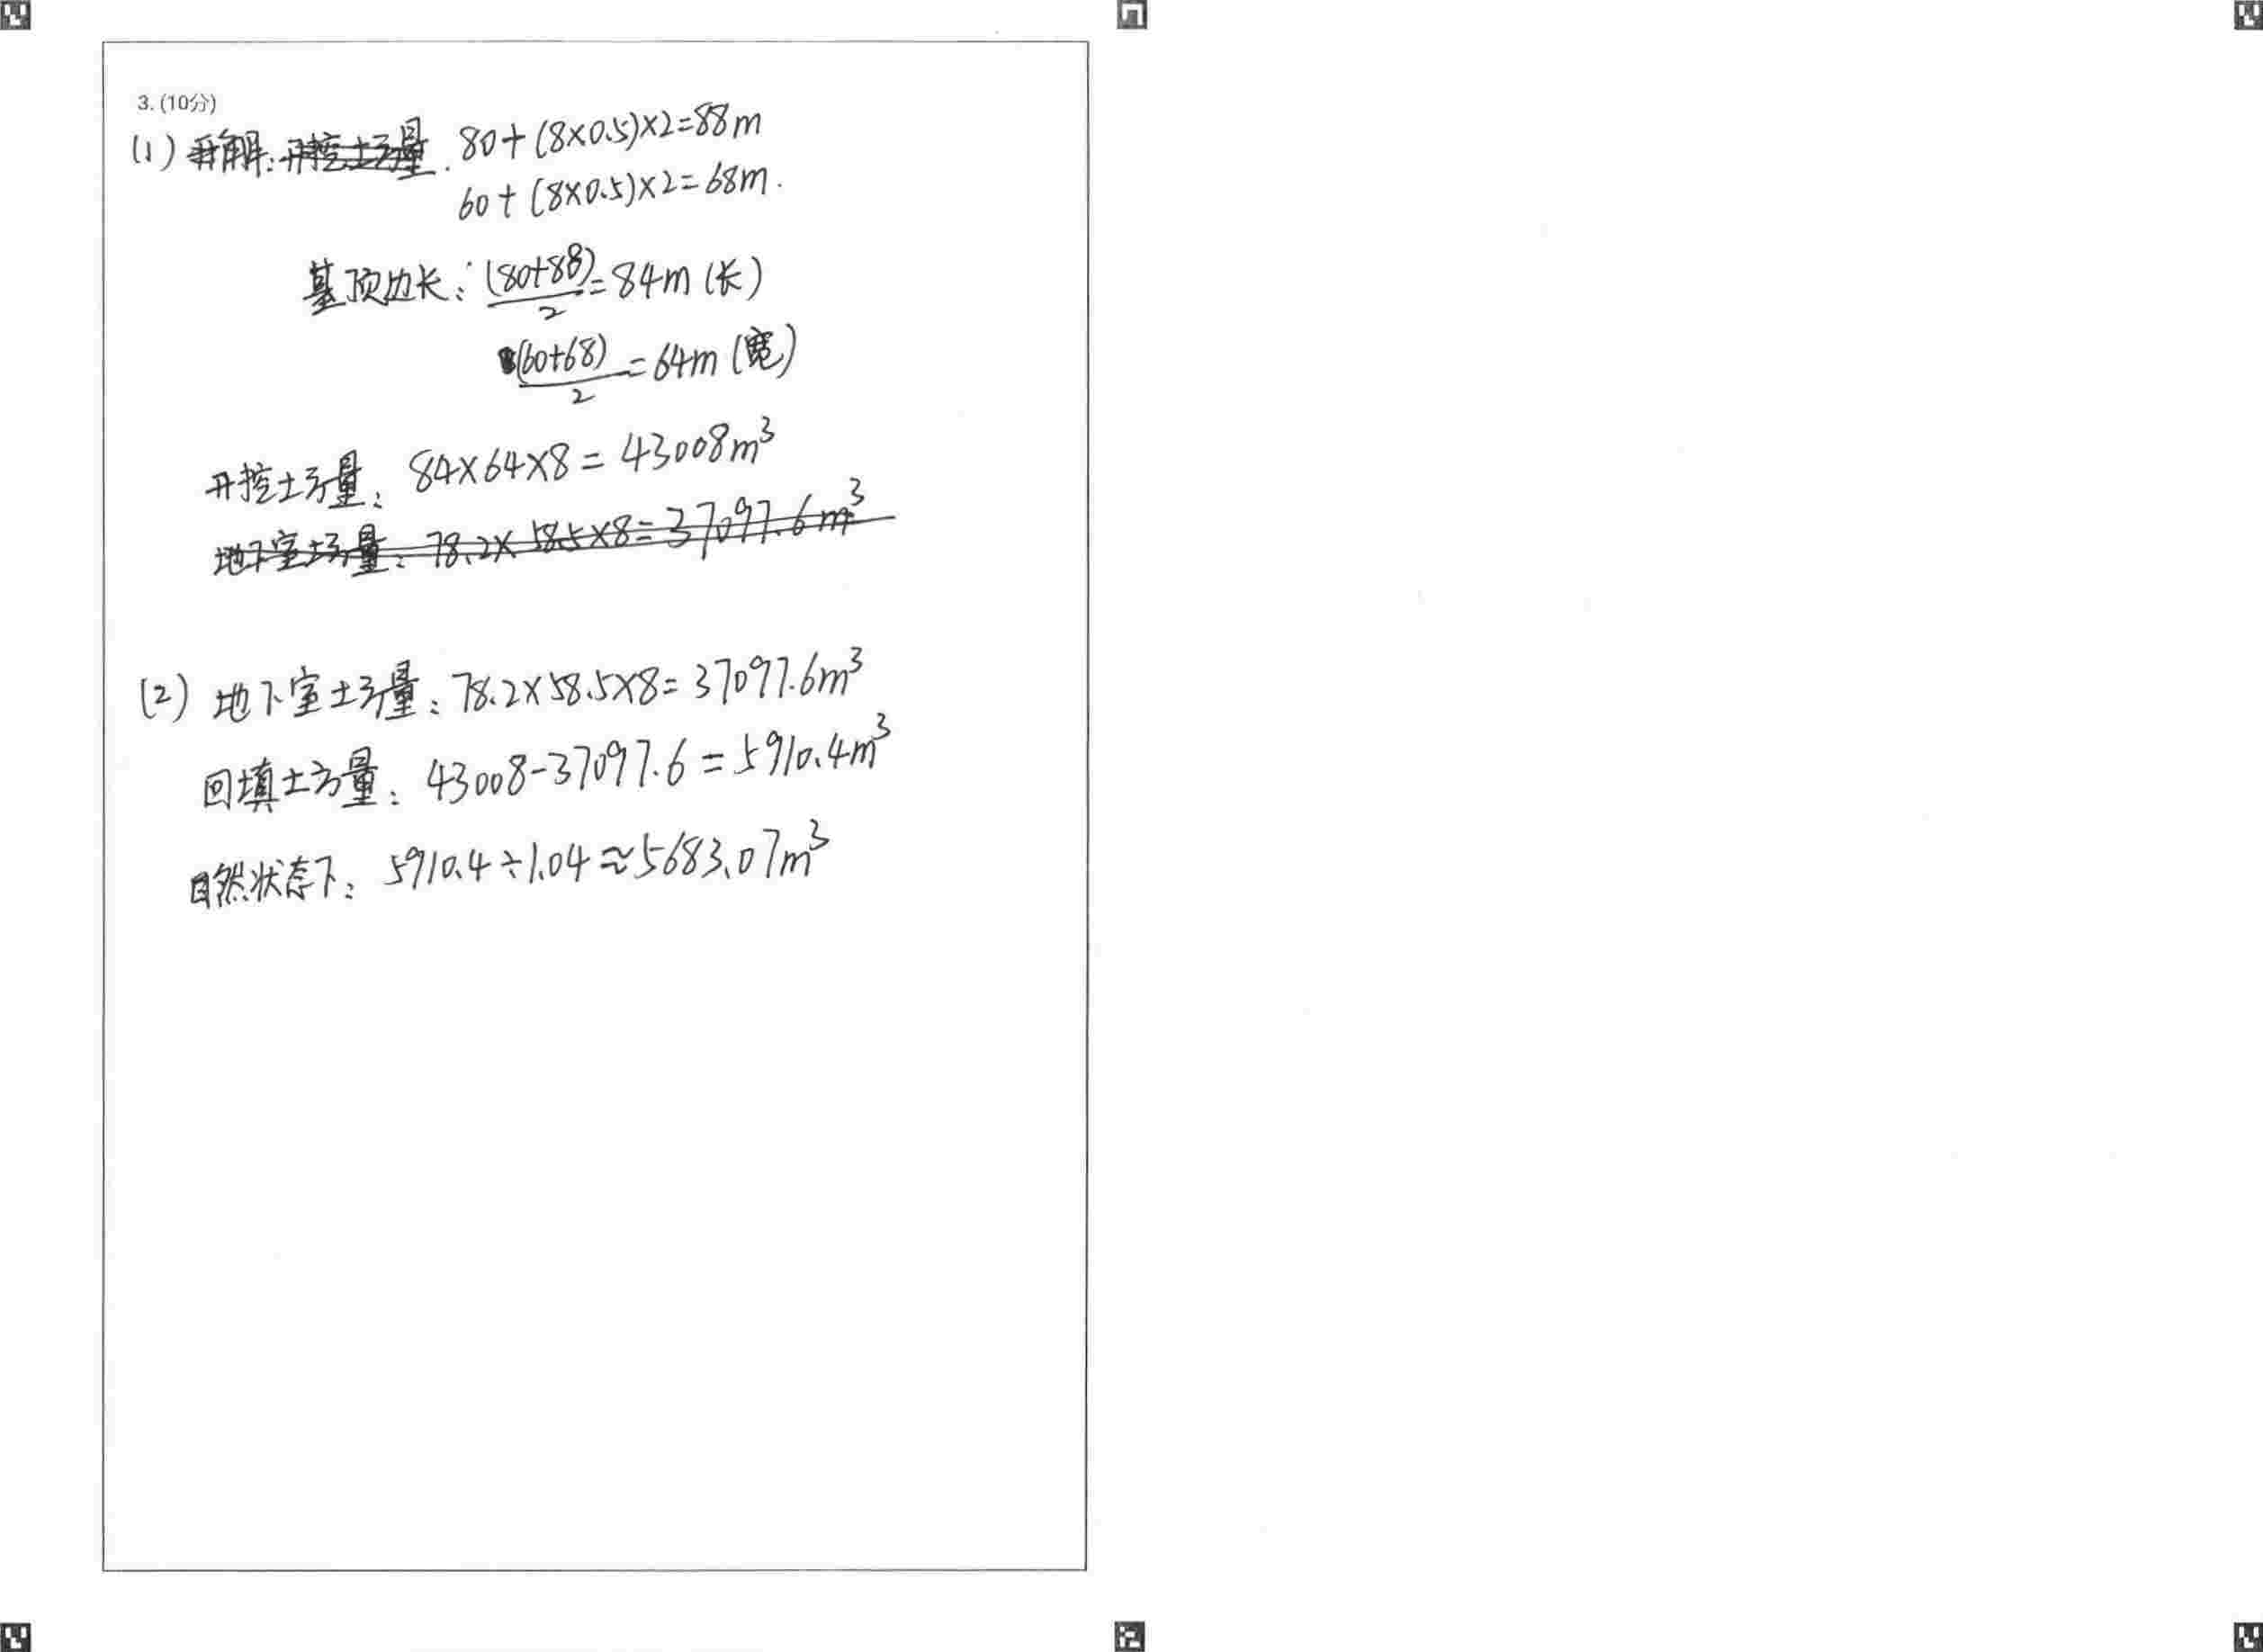 3. (10分)
(1) 解: 开挖土方量. 80+(8×0.5)×2=88m
60+(8×0.5)×2=68m.
基顶边长: (80+88)/2=84m (长)
(60+68)/2=64m (宽)
开挖土方量: 84×64×8=43008m³
地下室土方量: 78.2×58.5×8=37097.6m³
(2) 地下室土方量: 78.2×58.5×8=37097.6m³
回填土方量: 43008-37097.6=5910.4m³
自然状态下: 5910.4÷1.04≈5683.07m³